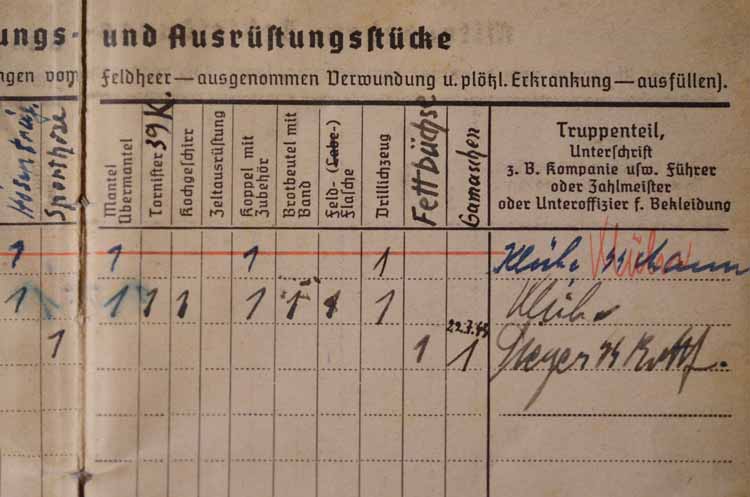 ungs- und Ausrüstungsstücke
ngen vom Feldheer — ausgenommen Verwundung u. plötzl. Erkrankung — ausfüllen).
Sporthose
Mantel
Übermantel
Tornister 39 K.
Kochgeschirr
Zeltausrüstung
Koppel mit
Zubehör
Brotbeutel mit
Band
Feld- (Labe-)
Flasche
Drillichzeug
Fettbüchse
Gamaschen
Truppenteil,
Unterschrift
z. B. Kompanie usw. Führer
oder Zahlmeister
oder Unteroffizier f. Bekleidung
1 1 1 1
1 1 1 1 1 1 1 1
1 1 1